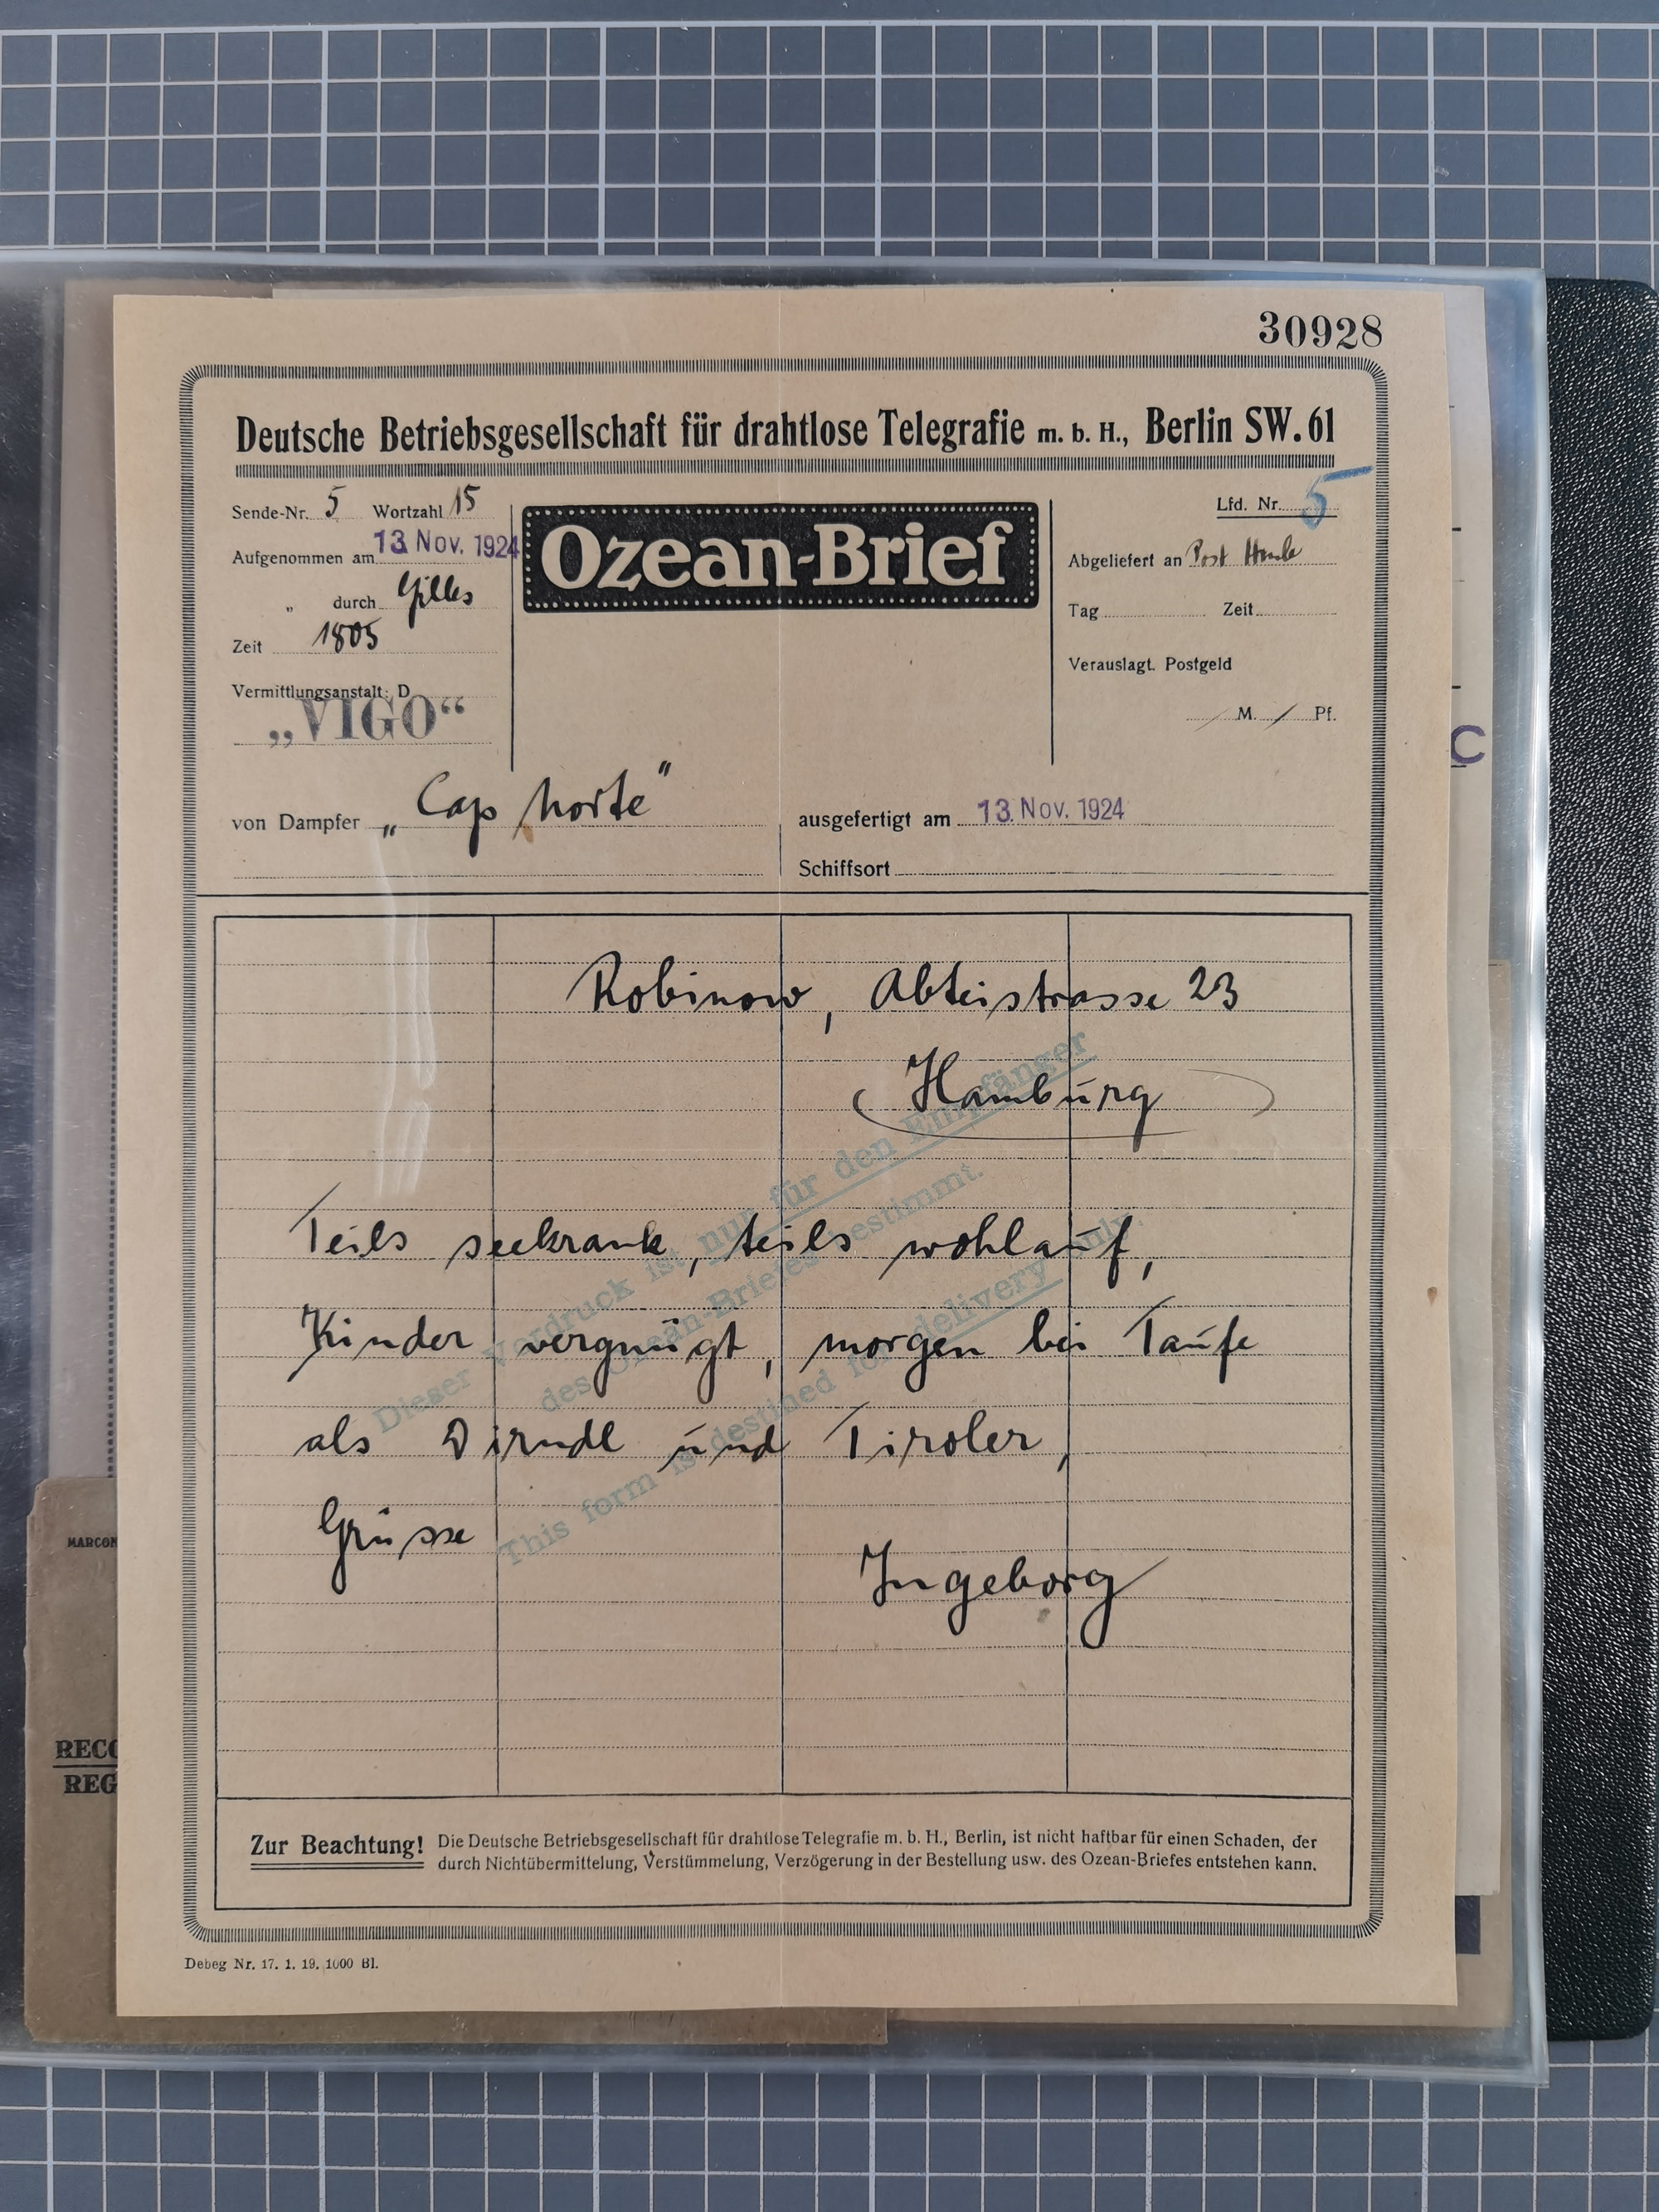 30928
Deutsche Betriebsgesellschaft für drahtlose Telegrafie m. b. H., Berlin SW. 61
Sende-Nr. 5 Wortzahl 15
Aufgenommen am 13. Nov. 1924
„ durch Gilles
Zeit 1805
Vermittlungsanstalt: D
„VIGO“
Ozean-Brief
Lfd. Nr. 5
Abgeliefert an Post
Tag Zeit
Verauslagt. Postgeld
M. Pf.
von Dampfer „Cap Norte"
ausgefertigt am 13. Nov. 1924
Schiffsort
Robinow, Abteistrasse 23
Hamburg
Teils seekrank, teils wohlauf,
Kinder vergnügt, morgen bei Taufe
als Dirndl und Tiroler,
Grüsse
Ingeborg
Dieser Vordruck ist nur für den Empfänger
des Ozean-Briefes bestimmt.
This form is destined for delivery only.
Zur Beachtung! Die Deutsche Betriebsgesellschaft für drahtlose Telegrafie m. b. H., Berlin, ist nicht haftbar für einen Schaden, der
durch Nichtübermittelung, Verstümmelung, Verzögerung in der Bestellung usw. des Ozean-Briefes entstehen kann.
Debeg Nr. 17. 1. 19. 1000 Bl.
MARCON
RECO
REG
C